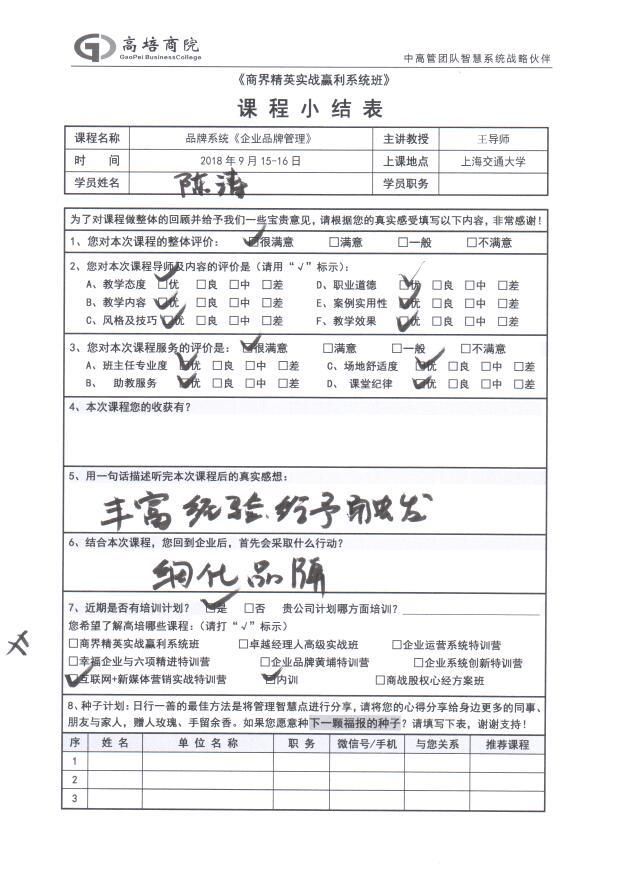 高培商院
GaoPei BusinessCollege
中高管团队智慧系统战略伙伴
《商界精英实战赢利系统班》
课程小结表
课程名称 品牌系统《企业品牌管理》 主讲教授 王导师
时 间 2018年9月15-16日 上课地点 上海交通大学
学员姓名 陈涛 学员职务
为了对课程做整体的回顾并给予我们一些宝贵意见，请根据您的真实感受填写以下内容，非常感谢！
1、您对本次课程的整体评价： ☑很满意 □满意 □一般 □不满意
2、您对本次课程导师及内容的评价是（请用“√”标示）：
A、教学态度 ☑优 □良 □中 □差 D、职业道德 ☑优 □良 □中 □差
B、教学内容 ☑优 □良 □中 □差 E、案例实用性 ☑优 □良 □中 □差
C、风格及技巧 ☑优 □良 □中 □差 F、教学效果 ☑优 □良 □中 □差
3、您对本次课程服务的评价是： ☑很满意 □满意 □一般 □不满意
A、班主任专业度 ☑优 □良 □中 □差 C、场地舒适度 ☑优 □良 □中 □差
B、 助教服务 ☑优 □良 □中 □差 D、 课堂纪律 ☑优 □良 □中 □差
4、本次课程您的收获有？
5、用一句话描述听完本次课程后的真实感想：
丰富经验.给予触发
6、结合本次课程，您回到企业后，首先会采取什么行动？
细化品牌
7、近期是否有培训计划？ ☑是 □否 贵公司计划哪方面培训？
您希望了解高培哪些课程：（请打“√”标示）
□商界精英实战赢利系统班 □卓越经理人高级实战班 □企业运营系统特训营
□幸福企业与六项精进特训营 □企业品牌黄埔特训营 □企业系统创新特训营
☑互联网+新媒体营销实战特训营 ☑内训 □商战股权心经方案班
8、种子计划：日行一善的最佳方法是将管理智慧点进行分享，请将您的心得分享给身边更多的同事、
朋友与家人，赠人玫瑰、手留余香。如果您愿意种下一颗福报的种子？请填写下表，谢谢支持！
序 姓名 单位名称 职务 微信号/手机 与您关系 推荐课程
1
2
3